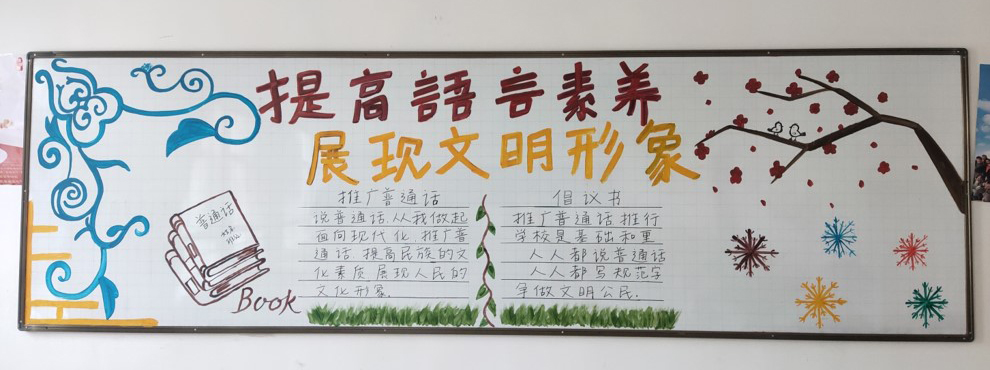 提高語言素养
展现文明形象
推广普通话
说普通话.从我做起
面向现代化.推广普
通话.提高民族的文
化素质.展现人民的
文化形象.
倡议书
推广普通话推行
学校是基础和重
人人都说普通话
人人都写规范字
争做文明公民.
普通话
Book